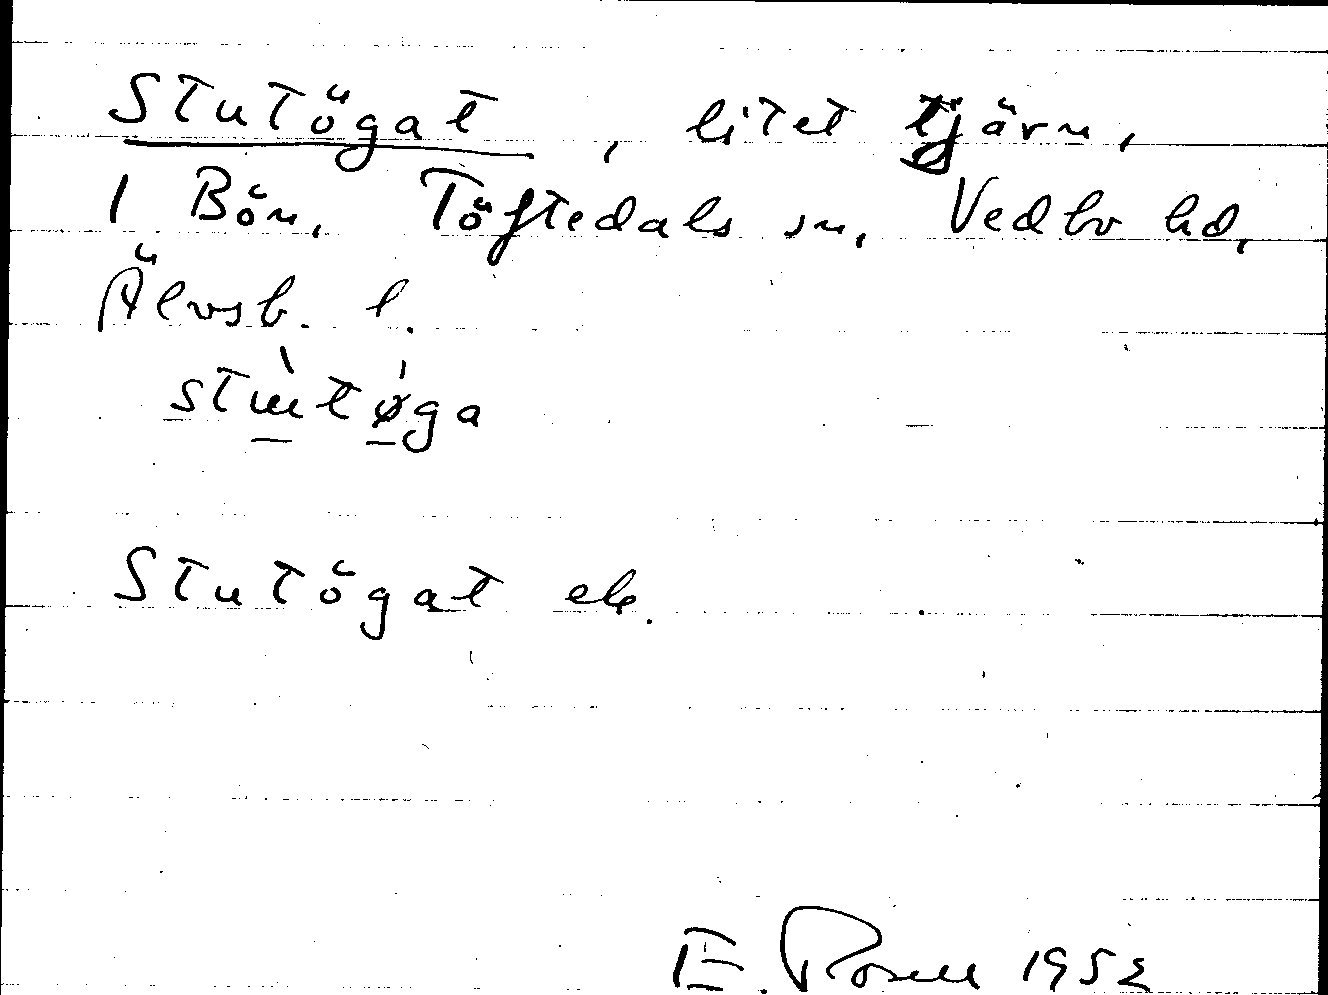 Stutögat, litet tjärn,
1 Bön, Töftedals sn, Vedbo hd,
Älvsb. l.
Stutögat ek.
E. Rosell 1952